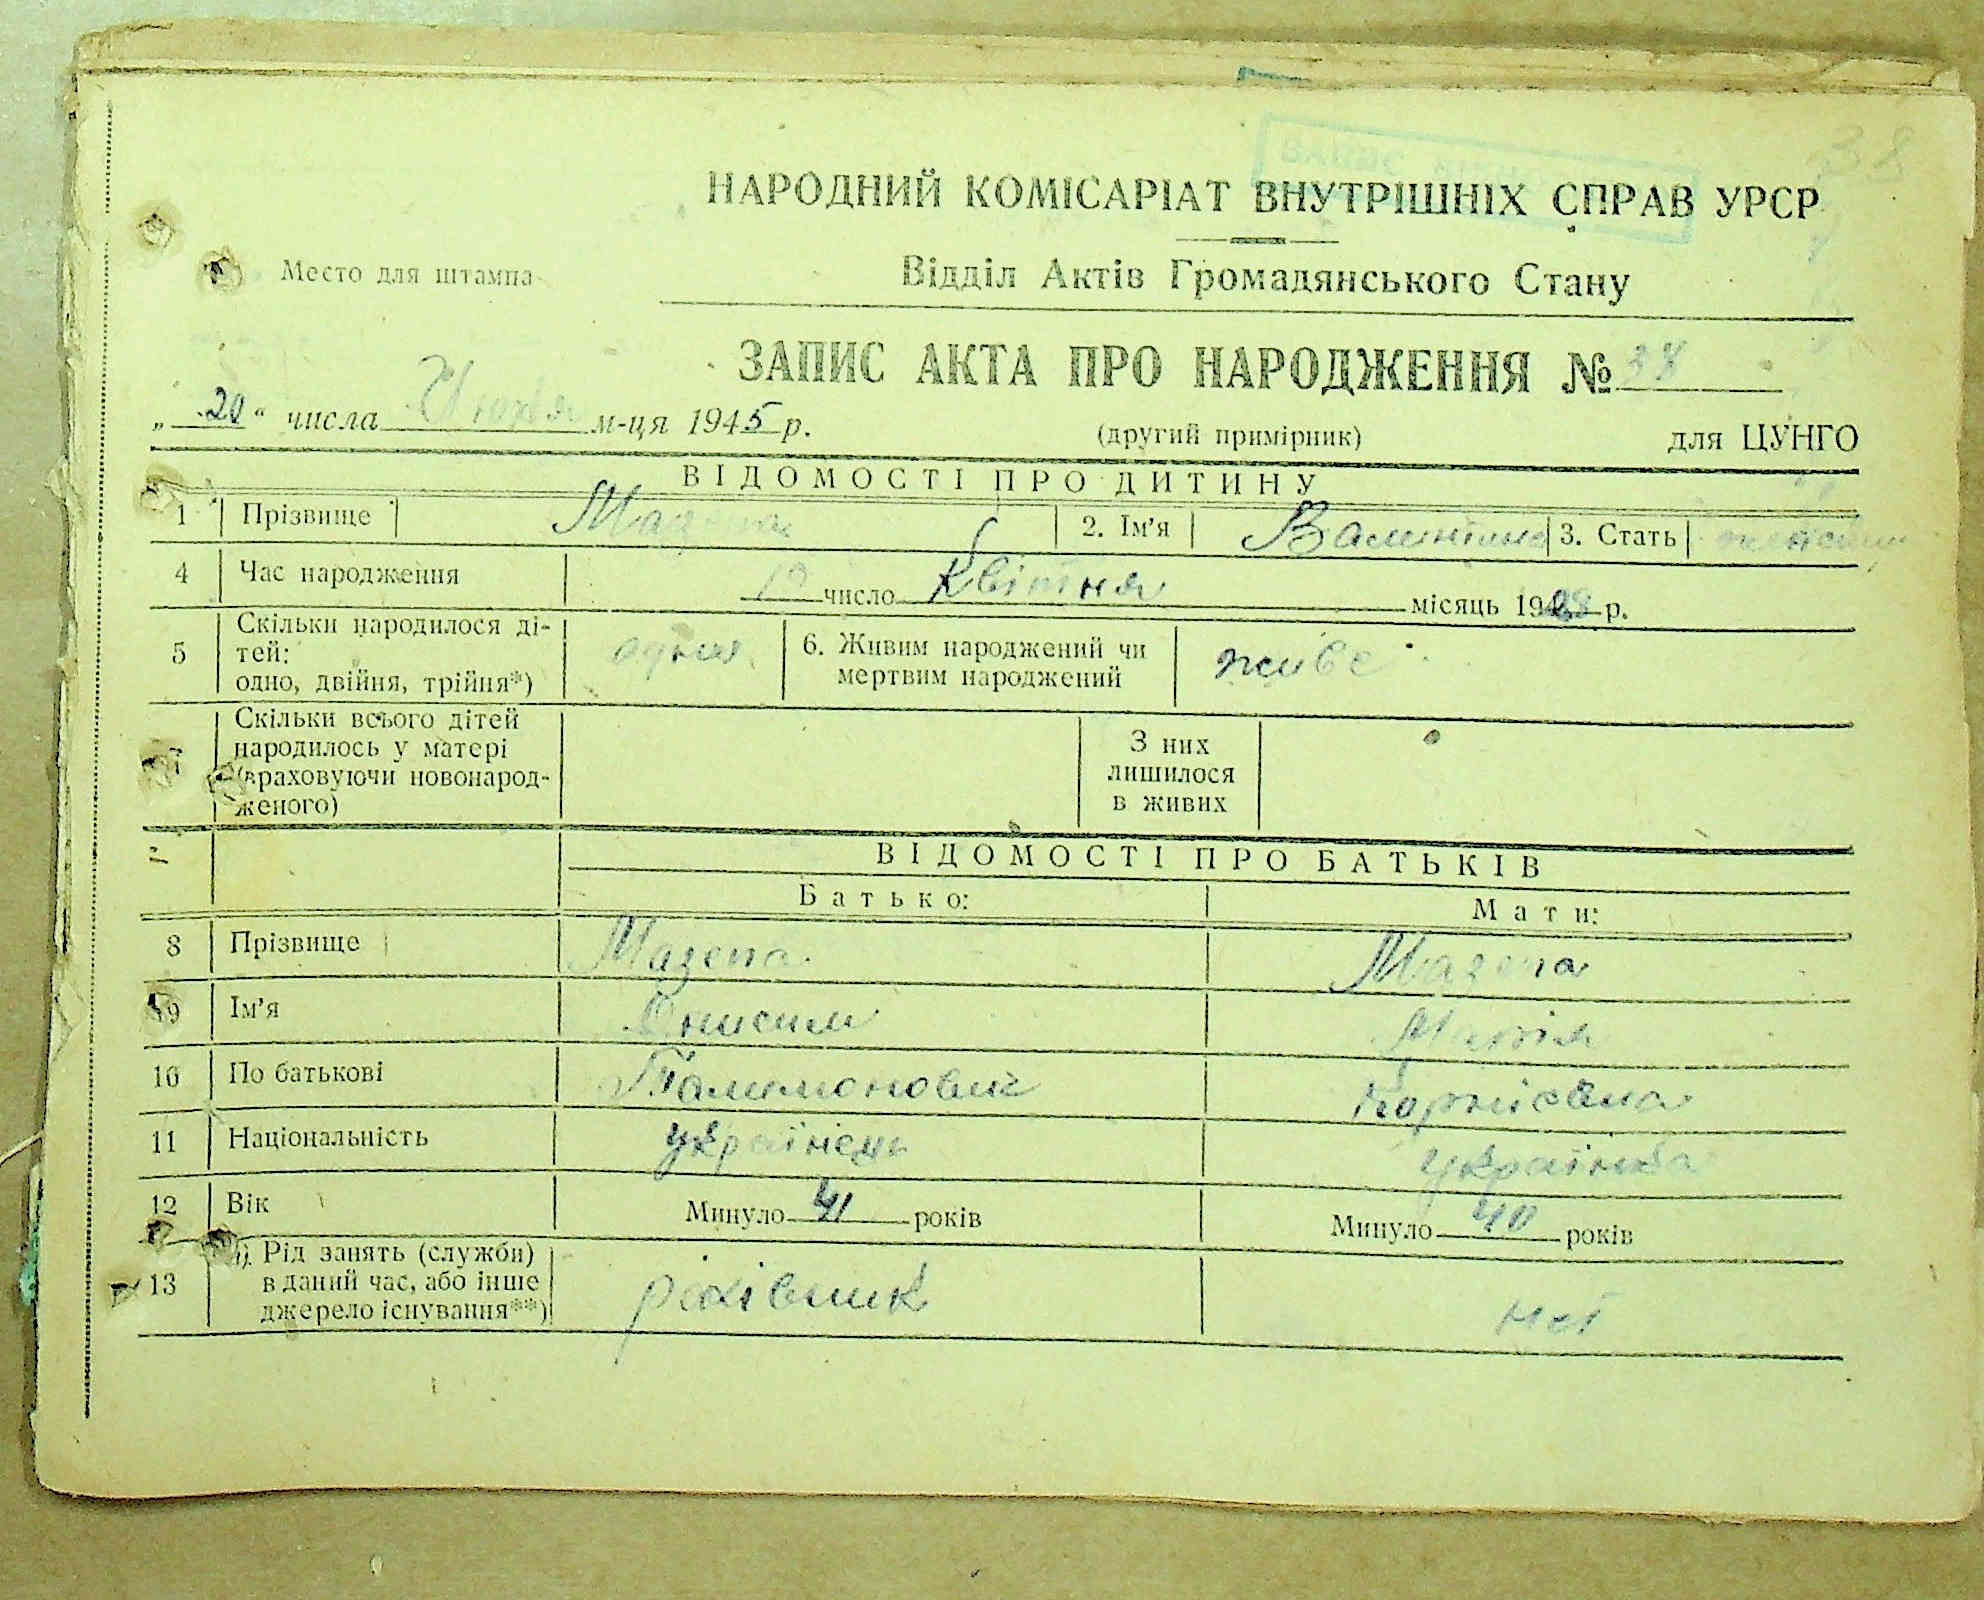 38
НАРОДНИЙ КОМІСАРІАТ ВНУТРІШНІХ СПРАВ УРСР
Место для штампа
Відділ Актів Громадянського Стану
ЗАПИС АКТА ПРО НАРОДЖЕННЯ №
„20“ числа м-ця 1945 р.
(другий примірник) для ЦУНГО
ВІДОМОСТІ ПРО ДИТИНУ
1 Прізвище Мазепа 2. Ім’я Валинтина 3. Стать
4 Час народження число Квітня місяць 19 р.
5 Скільки народилося ді-
тей:
одно, двійня, трійня*) одна 6. Живим народжений чи
мертвим народжений живе
7 Скільки всього дітей
народилось у матері
(враховуючи новонарод-
женого)
З них
лишилося
в живих
ВІДОМОСТІ ПРО БАТЬКІВ
Батько: Мати:
8 Прізвище Мазепа Мазепа
9 Ім’я Онисим Марія
10 По батькові Палимонович Корніївна
11 Національність українець українка
12 Вік Минуло 41 років Минуло 40 років
13 Рід занять (служби)
в даний час, або інше
джерело існування**) рахівник нет